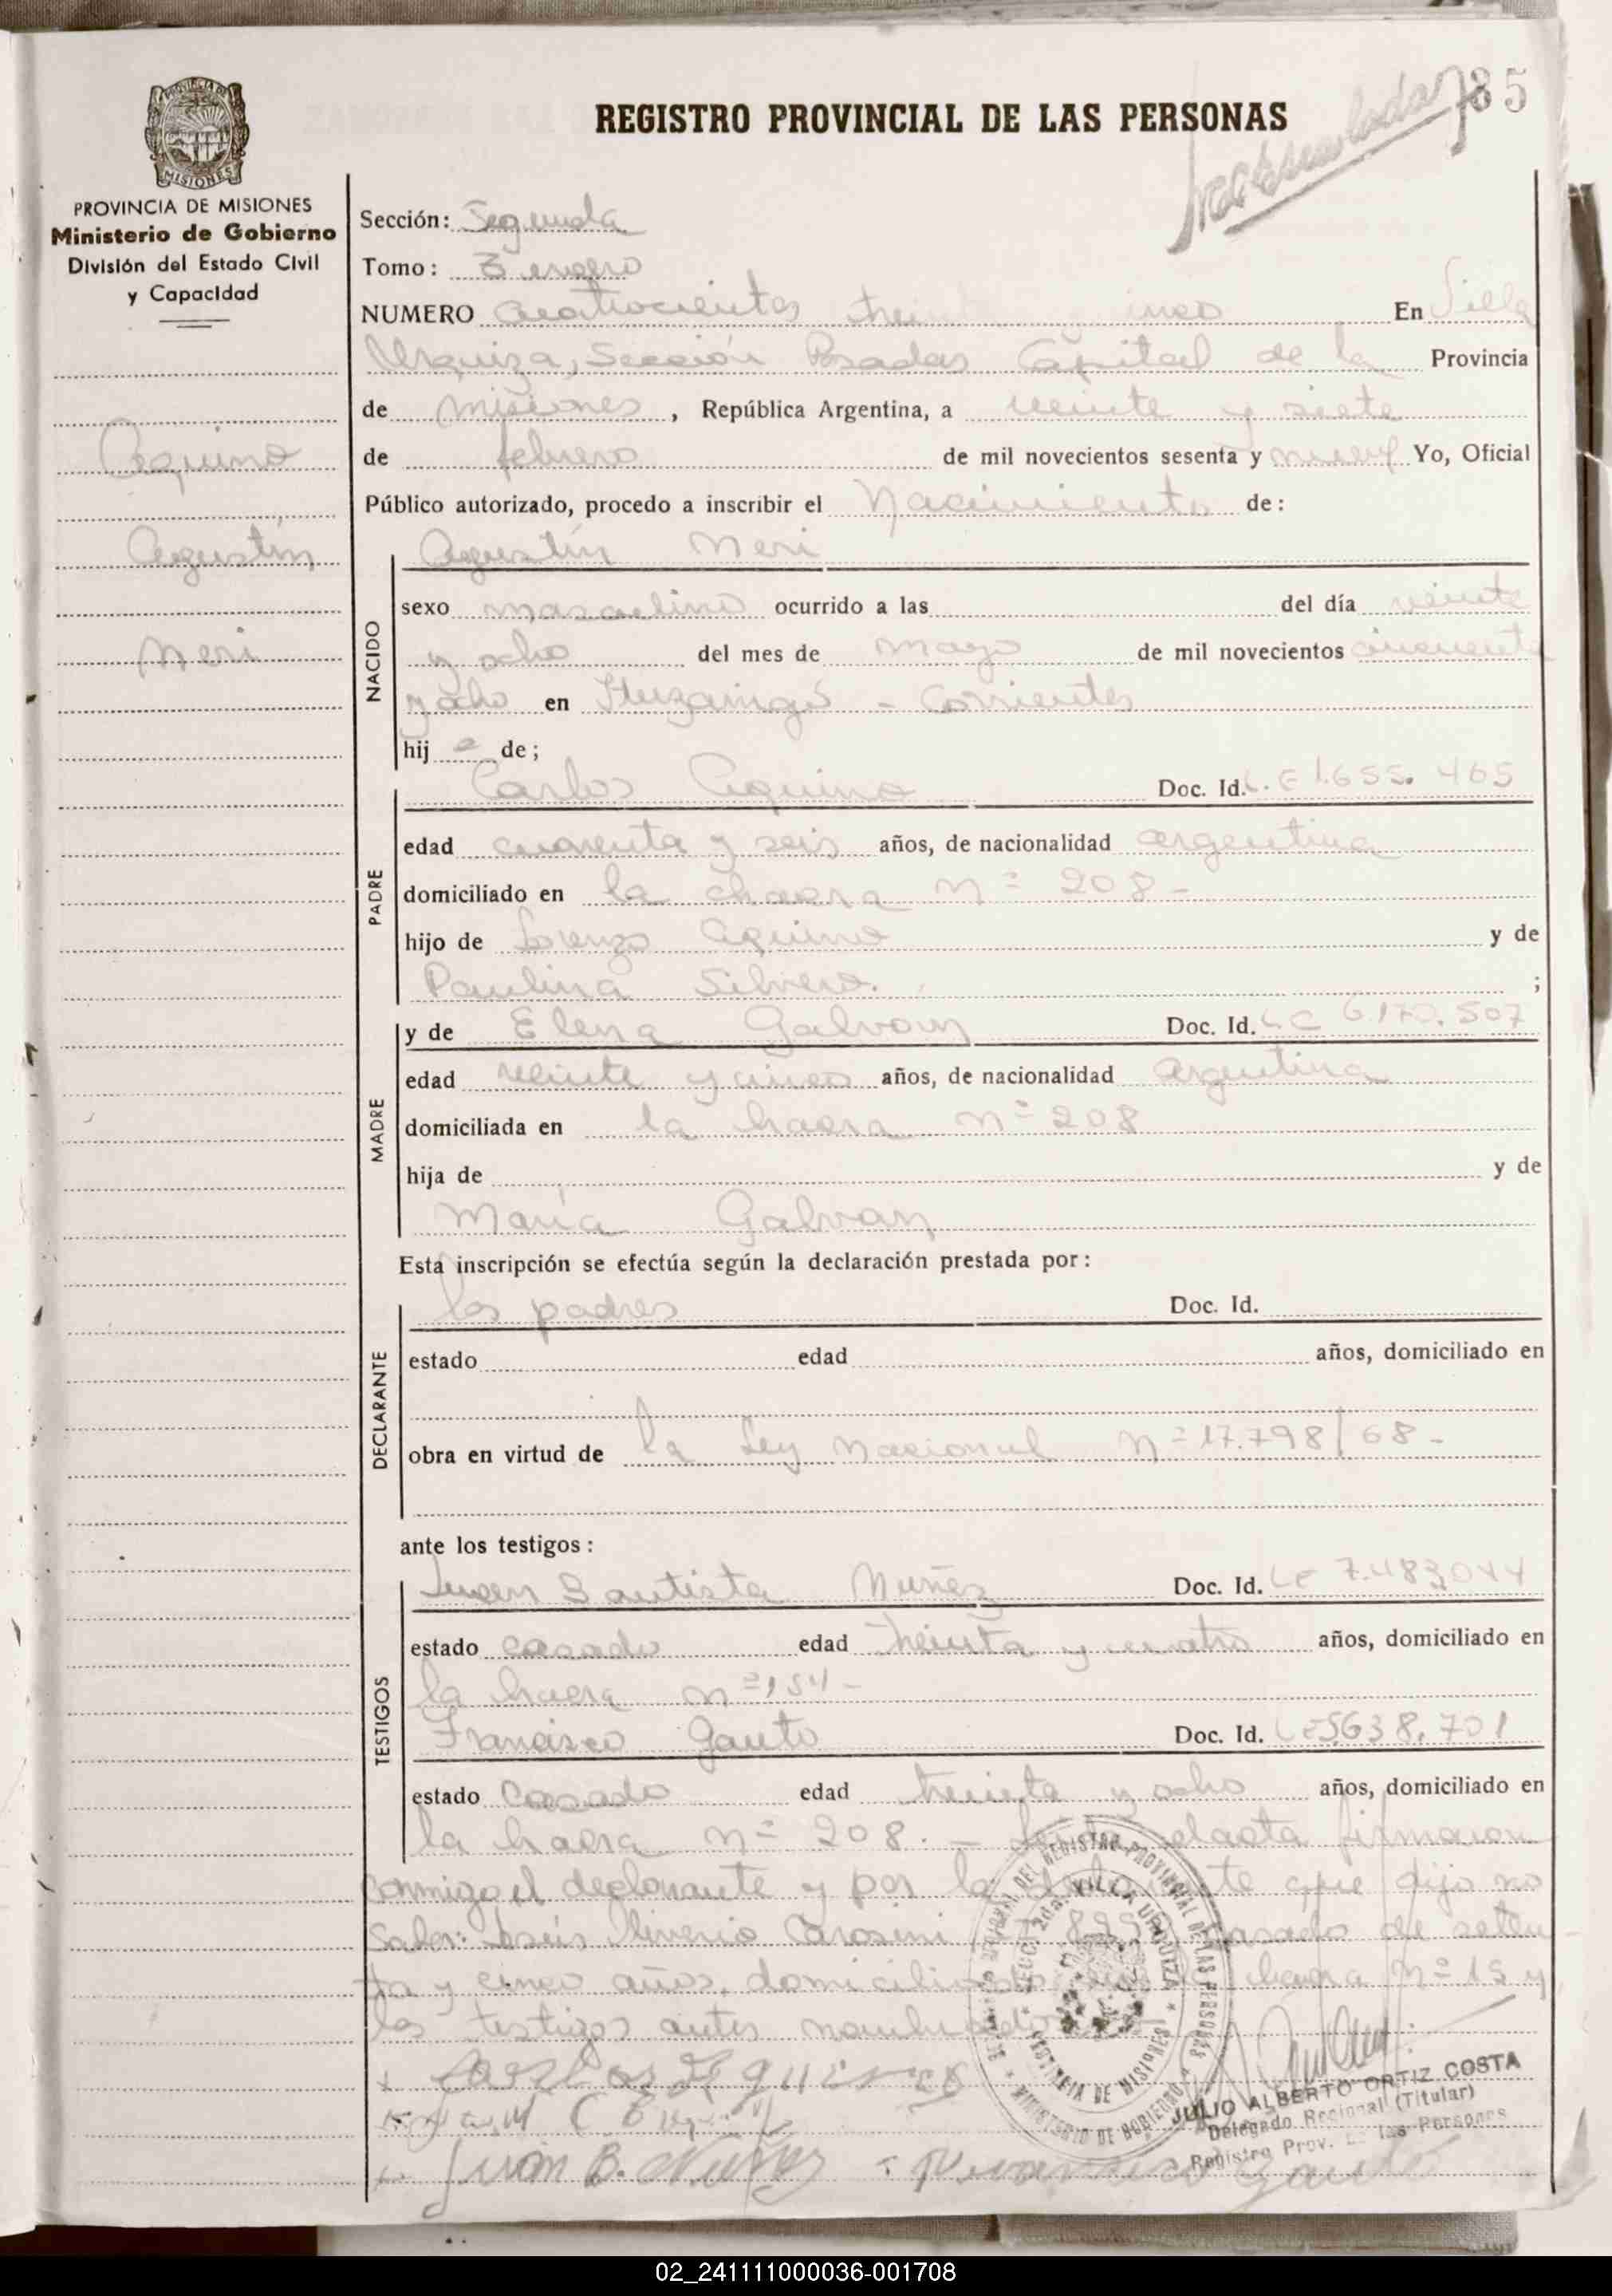 REGISTRO PROVINCIAL DE LAS PERSONAS
85
PROVINCIA DE MISIONES
Ministerio de Gobierno
División del Estado Civil
y Capacidad
Aquino
Agustín
Neri
Sección: Segunda
Tomo:
NUMERO cuatrocientos treinta y cinco En Villa
Urquiza, Sección Posadas Capital de la Provincia
de misiones, República Argentina, a veinte y siete
de febrero de mil novecientos sesenta y nueve Yo, Oficial
Público autorizado, procedo a inscribir el Nacimiento de:
Agustín Neri
NACIDO
sexo masculino ocurrido a las del día veinte
y ocho del mes de mayo de mil novecientos cincuenta
y ocho en Ituzaingó - Corrientes
hij o de;
Carlos Aquino Doc. Id. L.E 1.655.465
PADRE
edad cuarenta y seis años, de nacionalidad argentina
domiciliado en la chacra Nº 208-
hijo de Lorenzo Aquino y de
Paulina Silvero. ;
y de Elena Galvan Doc. Id. LC 6.170.507
MADRE
edad veinte y cinco años, de nacionalidad argentina
domiciliada en la chacra nº 208
hija de y de
María Galvan
Esta inscripción se efectúa según la declaración prestada por:
los padres Doc. Id.
DECLARANTE
estado edad años, domiciliado en
obra en virtud de la Ley Nacional Nº 17.798/68-
ante los testigos:
Juan Bautista Nuñez Doc. Id. LE 7.483.044
TESTIGOS
estado casado edad treinta y cuatro años, domiciliado en
la chacra nº 154-
Francisco Gauto Doc. Id. LE 5638.701
estado casado edad treinta y ocho años, domiciliado en
la chacra nº 208.- el acta firmaron
conmigo el declarante y por la que dijo no
saber: Jesús casado de seten
ta y cinco años, domiciliado chacra Nº 15 y
los testigos antes nombrados
Carlos Aquino
Juan B. Nuñez Francisco Gauto
REGISTRO PROVINCIAL DE LAS PERSONAS
SECC. 2da. VILLA URQUIZA
PROVINCIA DE MISIONES
MINISTERIO DE GOBIERNO
JULIO ALBERTO ORTIZ COSTA
Delegado Regional (Titular)
Registro Prov. de las Personas
02_241111000036-001708